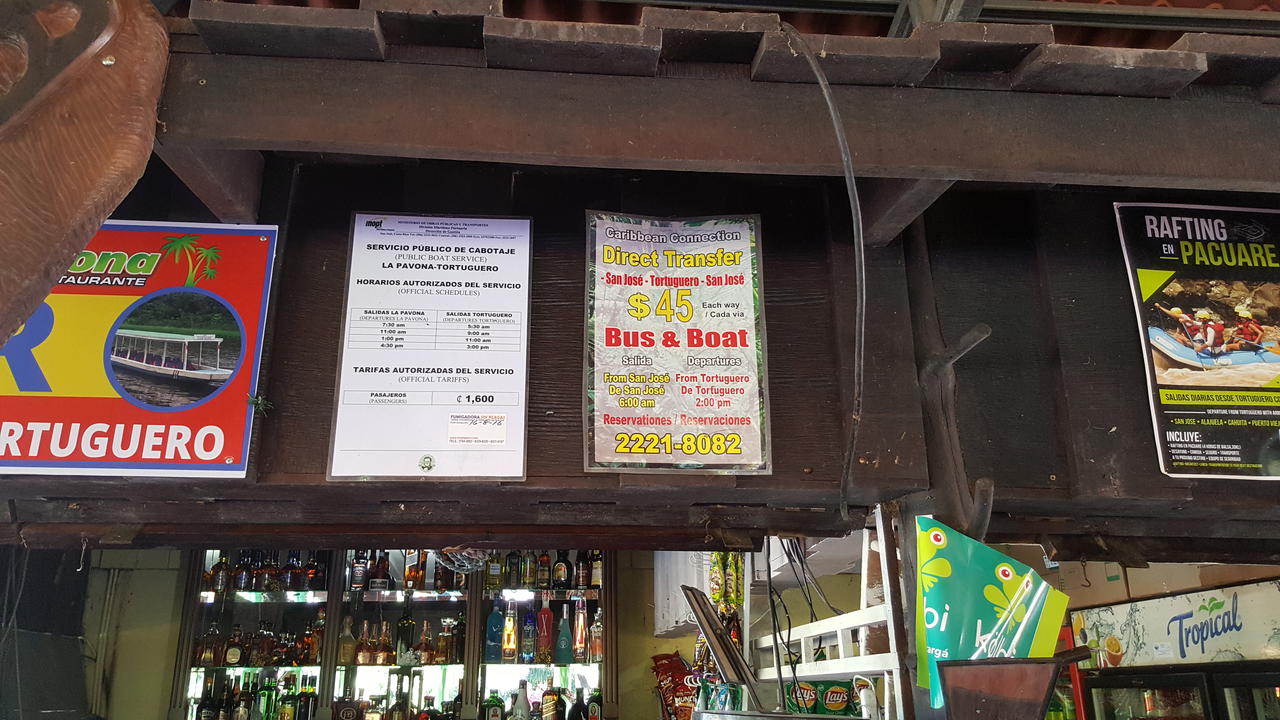 ona
TAURANTE
R
RTUGUERO
mopt
MINISTERIO DE OBRAS PÚBLICAS Y TRANSPORTES
SERVICIO PÚBLICO DE CABOTAJE
(PUBLIC BOAT SERVICE)
LA PAVONA-TORTUGUERO
HORARIOS AUTORIZADOS DEL SERVICIO
(OFFICIAL SCHEDULES)
SALIDAS LA PAVONA SALIDAS TORTUGUERO
(DEPARTURES LA PAVONA) (DEPARTURES TORTUGUERO)
7:30 am 5:30 am
11:00 am 9:00 am
1:00 pm 11:00 am
4:30 pm 3:00 pm
TARIFAS AUTORIZADAS DEL SERVICIO
(OFFICIAL TARIFFS)
PASAJEROS ₡ 1,600
(PASSENGERS)
FUMIGADORA SIN PLAGA
16-8-16
Caribbean Connection
Direct Transfer
- San José - Tortuguero - San José
$45 Each way
/ Cada via
Bus & Boat
Salida Departures
From San José From Tortuguero
De San José De Tortuguero
6:00 am 2:00 pm
Reservationes / Reservaciones
2221-8082
RAFTING
EN PACUARE
SALIDAS DIARIAS DESDE TORTUGUERO CO
DEPARTURE FROM TORTUGUERO WITH
• SAN JOSE • ALAJUELA • CAHUITA • PUERTO VIEJ
INCLUYE:
bi
k
argá
Tropical
Lay's
Lay's